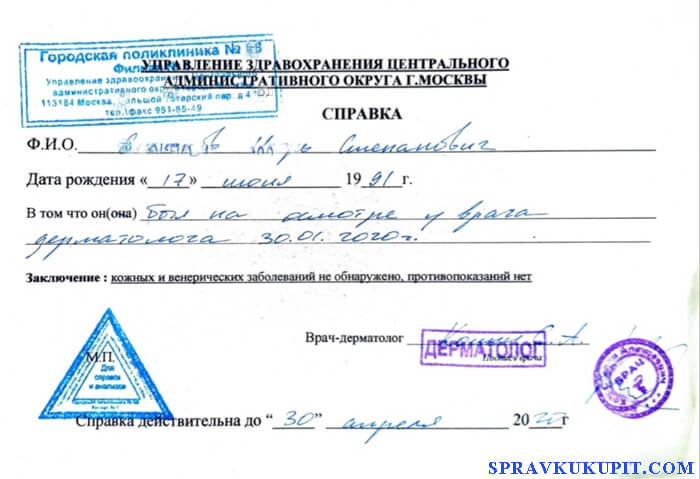 Городская поликлиника №
Филиал
Управление здравоохранения
административного округа
113184 Москва, Большой Татарский пер. д 4
тел./факс 951-85-49
УПРАВЛЕНИЕ ЗДРАВОХРАНЕНИЯ ЦЕНТРАЛЬНОГО
АДМИНИСТРАТИВНОГО ОКРУГА Г.МОСКВЫ
СПРАВКА
Ф.И.О. Степанович
Дата рождения «17» июля 1991г.
В том что он(она) был на осмотре у врача
дерматолога 30.01.2020г.
Заключение : кожных и венерических заболеваний не обнаружено, противопоказаний нет
Врач-дерматолог
ДЕРМАТОЛОГ
Подпись врача
ВРАЧ
М.П.
Для
справок
и анализов
Справка действительна до “30” апреля 2020г
SPRAVKUKUPIT.COM